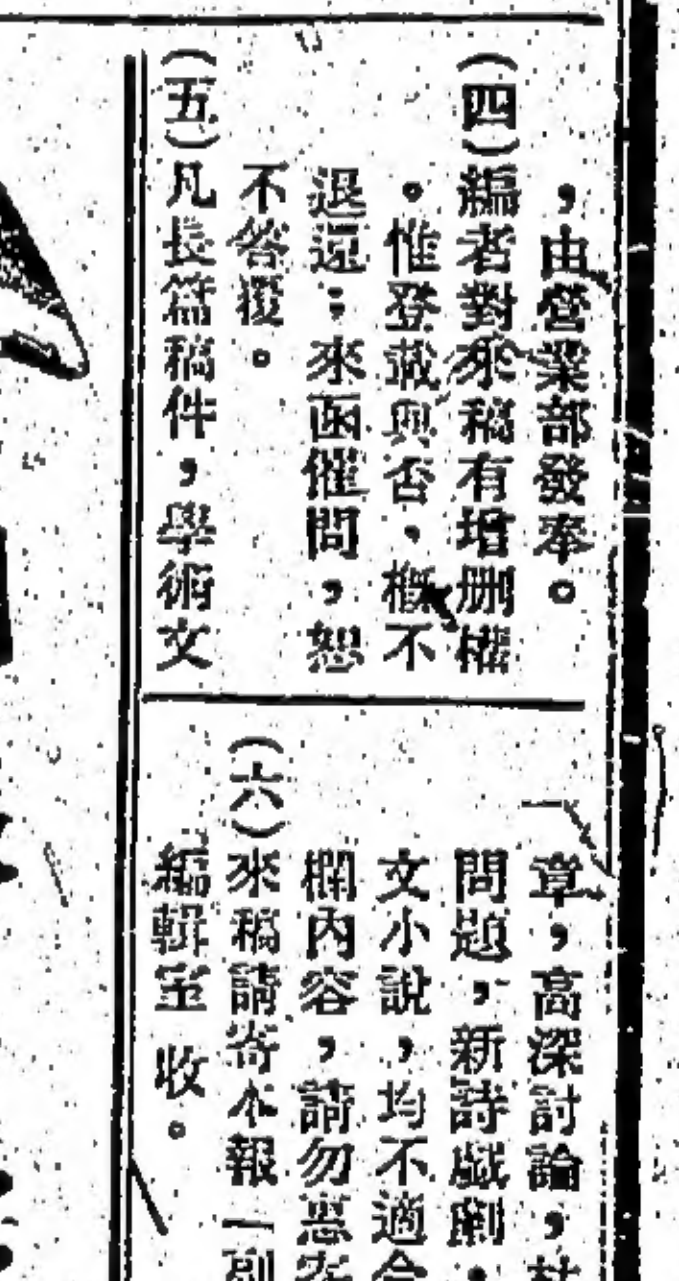 ，由營業部發奉。
(四)編者對來稿有增删權
。惟登載與否，概不
退還；來函催問，恕
不答覆。
(五)凡長篇稿件，學術文
章，高深討論，
問題，新詩戲劇，
文小說，均不適合
欄內容，請勿惠寄
(六)來稿請寄本報一副
編輯室 收。